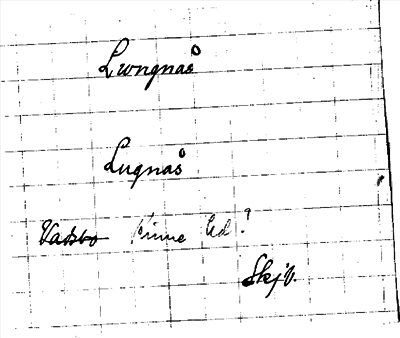 Lwngnås
Lugnås
Vadsbo Kinne hd?
Skjv.